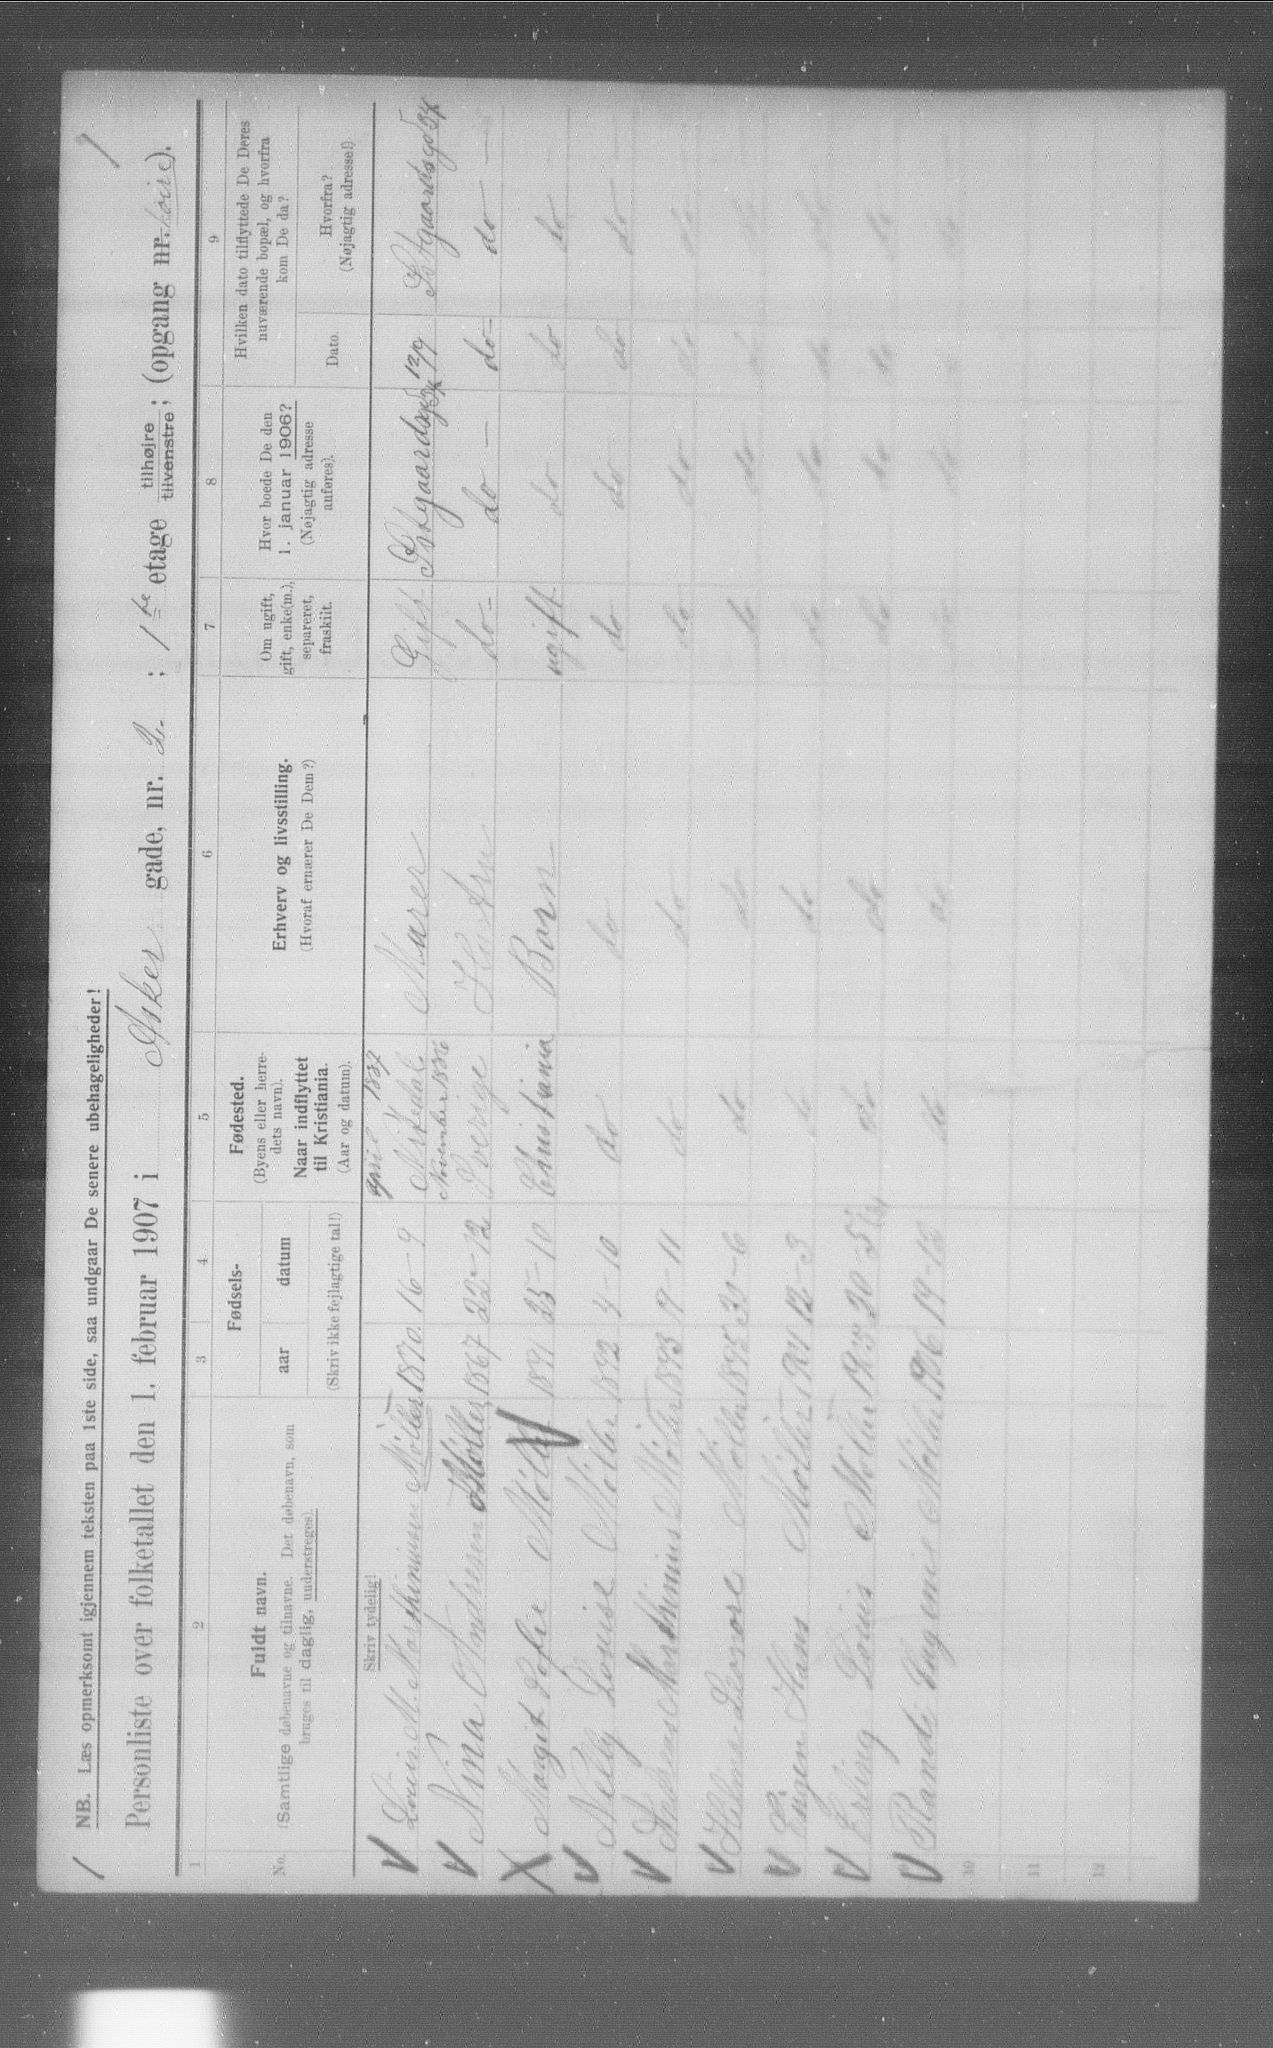 NB. Læs opmerksomt igjennem teksten paa 1ste side, saa undgaar De senere ubehageligheder!
Personliste over folketallet den 1. februar 1907 i Asker gade, nr. 2. ; 1ste etage tilhøjre tilvenstre; (opgang nr. ).
1 2 3 4 5 6 7 8 9
No.
Fuldt navn.
(Samtlige døbenavne og tilnavne. Det døbenavn, som
bruges til daglig, understreges).
Fødsels-
aar datum
(Skriv ikke fejlagtige tal!)
Fødested.
(Byens eller herre-
dets navn).
Naar indflyttet
til Kristiania.
(Aar og datum).
Erhverv og livsstilling.
(Hvoraf ernærer De Dem?)
Om ugift,
gift, enke(m.),
separeret,
fraskilt.
Hvor boede De den
1. januar 1906?
(Nøjagtig adresse
anføres).
Hvilken dato tilflyttede De Deres
nuværende bopæl, og hvorfra
kom De da?
Dato.
Hvorfra?
(Nøjagtig adresse!)
Skriv tydelig!
april
Louis M. Marthinius Møller 1870 16-9 Murer Gift 12/9
November
Nina Andresen Møller 1867 22-12 Sverige Hustru do- do- do- do-
Margit Sofie Møller 1891 25-10 Christiania Børn ugift do do do
Nelly Louise Møller 1892 4-10 do do do do do do
Andreas Marthinius Møller 1893 9-11 do do do do do do
Hilma Lenore Møller 1895 do do do do do do
Hans Møller 12-3 do do do do do do
Erling Louis Møller do do do do do do
Randi Møller 1906 do do do do
10
11
12